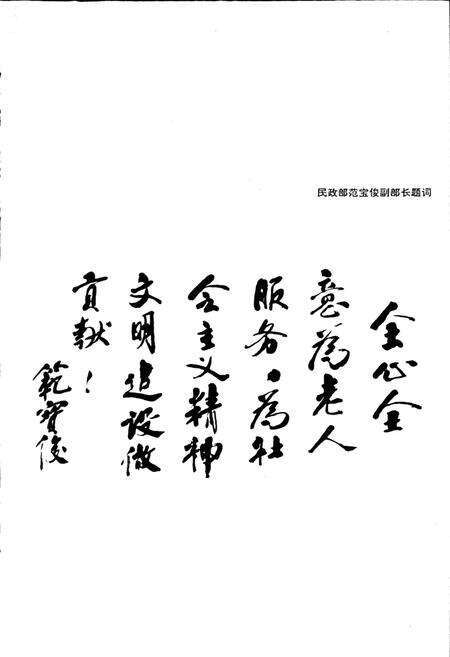 民政部范宝俊副部长题词
全心全
意为老人
服务，为社
会主义精神
文明建设做
贡献！
範寶俊